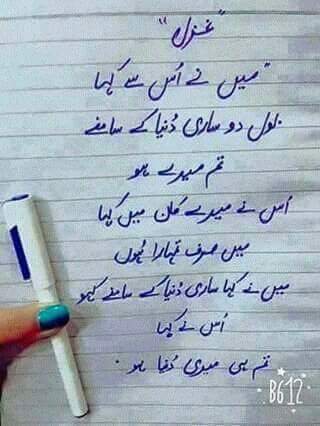 "غزل"
"میں نے اُس سے کہا
بول دو ساری دُنیا کے سامنے
تم میرے ہو
اُس نے میرے کان میں کہا
میں صرف تمہارا ہوں
میں نے کہا ساری دُنیا کے سامنے کہو
اُس نے کہا
تم ہی میری دُنیا ہو .
B612